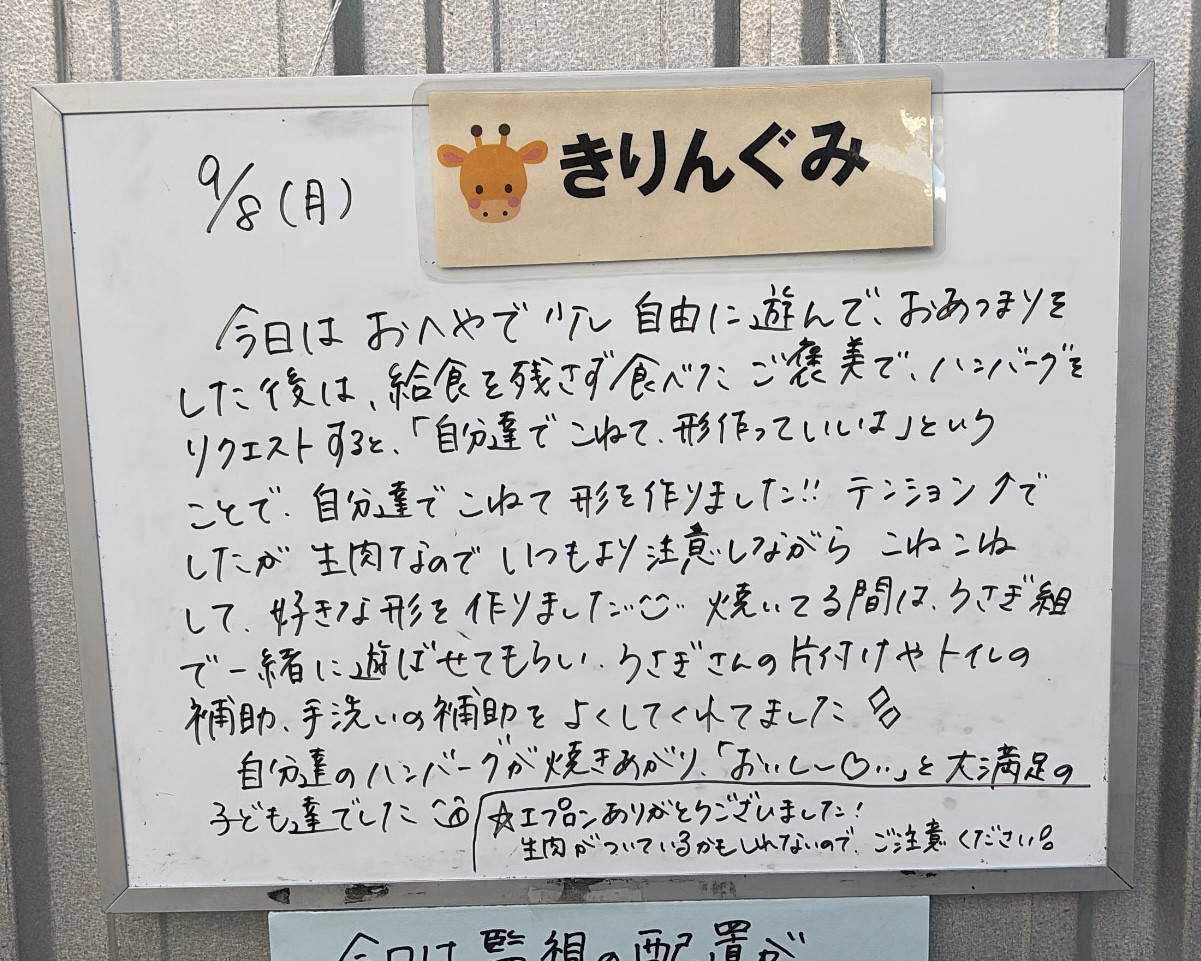 きりんぐみ
9/8(月)
今日は おへやで 少し 自由に 遊んで、おあつまりを
した後は、給食を残さず食べたご褒美で、ハンバーグを
リクエストすると、「自分達でこねて、形作っていいよ」という
ことで、自分達でこねて形を作りました!! テンション↑で
したが 生肉なので いつもより注意しながら こねこね
して、好きな形を作りました 焼いてる間は、うさぎ組
で一緒に遊ばせてもらい、うさぎさんの片付けやトイレの
補助、手洗いの補助をよくしてくれてました
自分達のハンバーグが焼きあがり、「おいしー♡」と大満足の
子ども達でした
☆エプロンありがとうございました!
生肉がついているかもしれないので、ご注意ください!
今日は監視の配置が